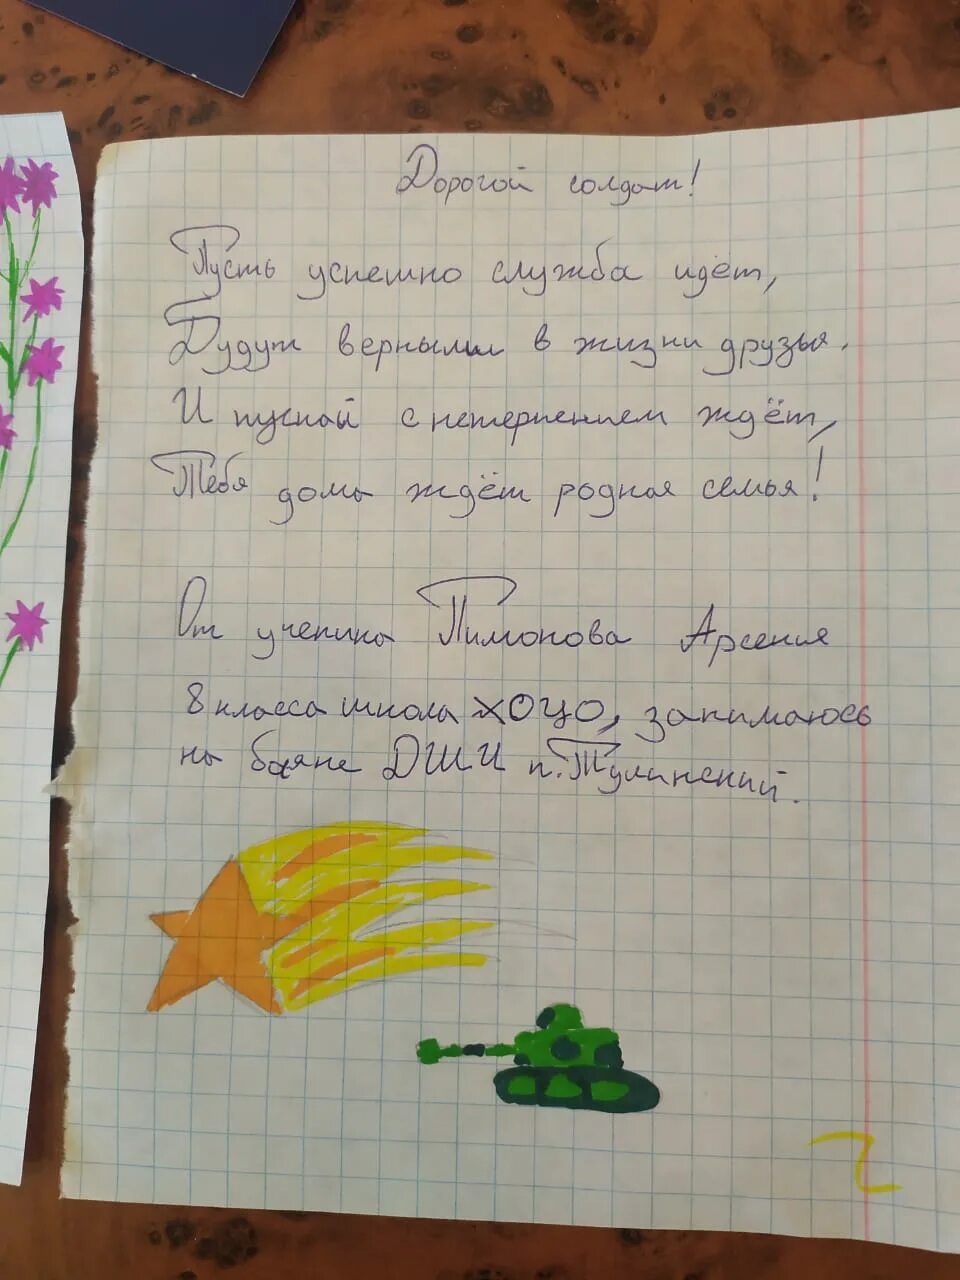 Дорогой солдат!
Пусть успешно служба идёт,
Будут верными в жизни друзья.
И пускай с нетерпением ждёт,
Тебя дома ждёт родная семья!
От ученика Пимонова Арсения
8 класса школа ХОЦО, занимаюсь
на баяне ДШИ п. Тулинский.